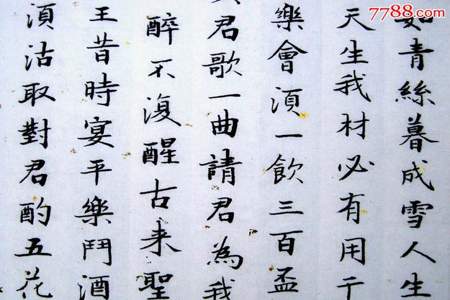 7788.com
如青絲暮成雪人生
天生我材必有用千
樂會湏一飲三百盃
君歌一曲請君為我
醉不復醒古来聖
王昔時宴平樂鬥酒
湏沽取對君酌五花